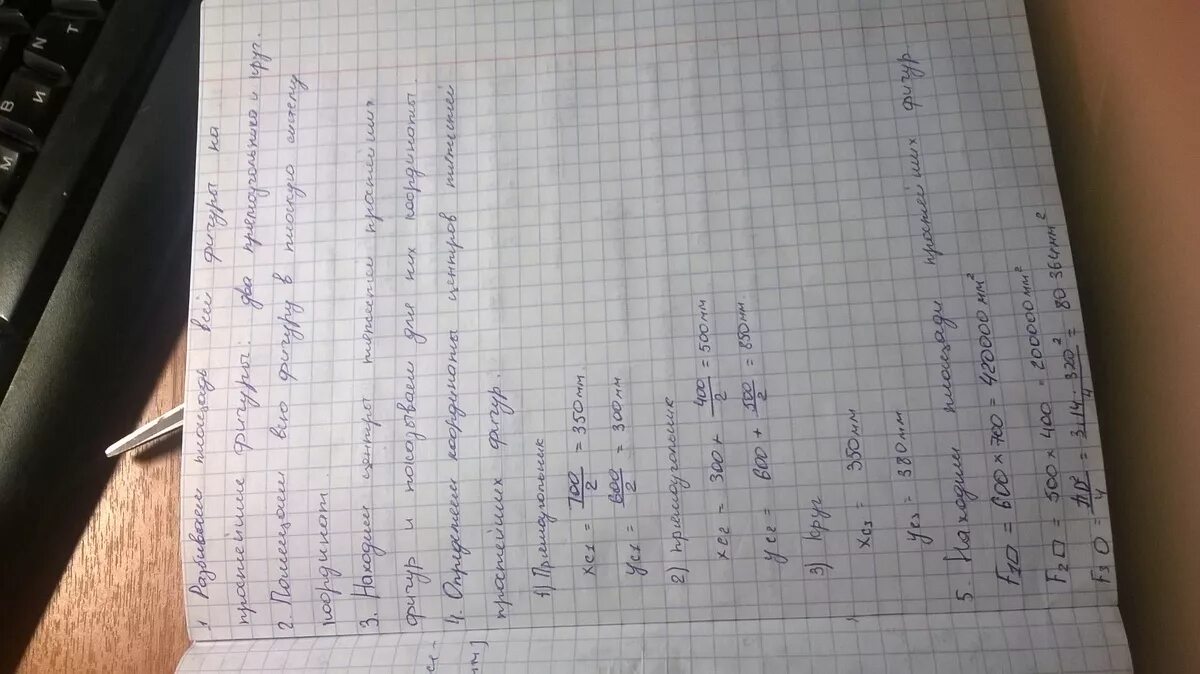 1 Разбиваем площадь всей фигуры на
простейшие фигуры: два прямоугольника и круг.
2. Помещаем всю фигуру в плоскую систему
координат.
3. Находим центры тяжестей простейших
фигур и показываем для них координаты.
4. Определяем координаты центров тяжестей
простейших фигур.
1) Прямоугольник
xc1 = 700/2 = 350мм
yc1 = 600/2 = 300мм
2) прямоугольник
xc2 = 300 + 400/2 = 500мм
yc2 = 600 + 500/2 = 850мм
3) круг
xc3 = 350мм
yc3 = 380мм
5. Находим площади простейших фигур
F1□ = 600 × 700 = 420000мм²
F2□ = 500 × 400 = 200000мм²
F3○ = πD²/4 = 3.14 · 320²/4 = 80364мм²
сл.
мм]
N
Т
В
И
М